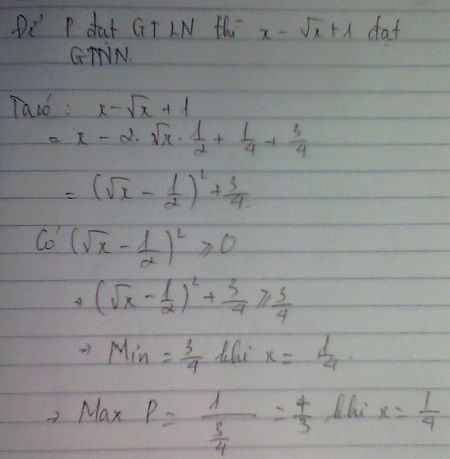 Để P đạt GTLN thì x - √x + 1 đạt
GTNN.
Ta có : x - √x + 1
= x - 2. √x . 1/2 + 1/4 + 3/4
= (√x - 1/2)² + 3/4
Có (√x - 1/2)² ≥ 0
→ (√x - 1/2)² + 3/4 ≥ 3/4
→ Min = 3/4 khi x = 1/4.
→ Max P = 1/(3/4) = 4/3 khi x = 1/4